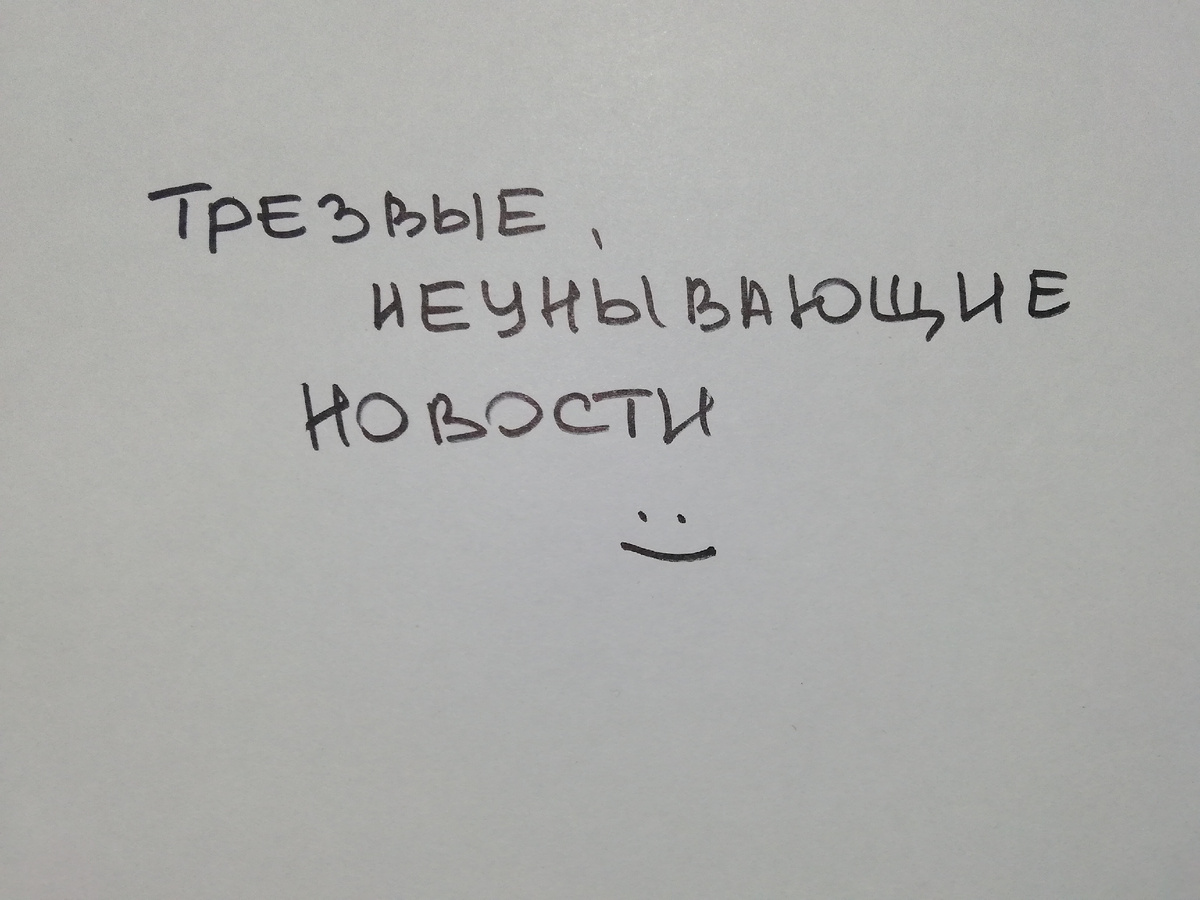 ТРЕЗВЫЕ,
НЕУНЫВАЮЩИЕ
НОВОСТИ